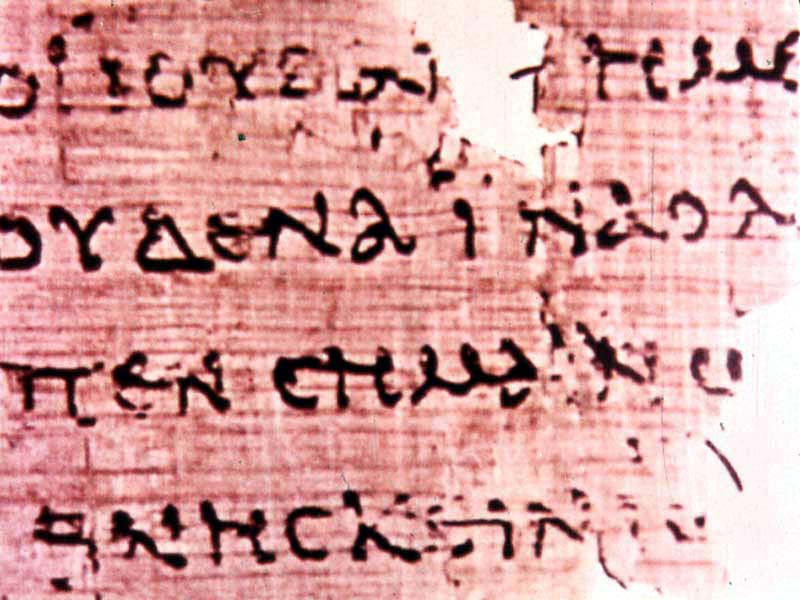 ΟΙ ΙΟΥΔΑΙ ΗΜΕ
ΟΥΔΕΝΑ ΙΝΑ ΟΛ
ΠΕΝ ϹΗΜΑΙΝω
ΘΝΗϹΚΕΙΝ